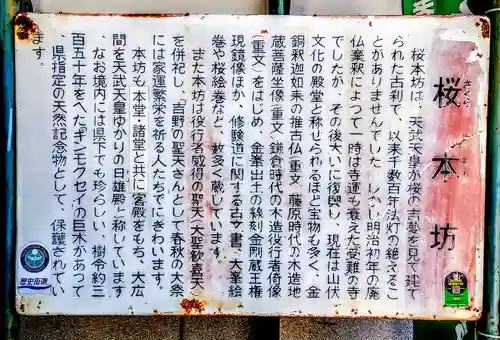 さくら もと ぼう
桜本坊
桜本坊は、天武天皇が桜の吉夢を見て建て
られた古刹で、以来千数百年法灯の絶えるこ
とがありませんでした。しかし明治初年の廃
仏棄釈によって一時は寺運も衰えた受難の寺
でしたが、その後大いに復興し、現在は山伏
文化の殿堂と称せられるほど宝物も多く、金
銅釈迦如来の推古仏（重文）藤原時代の木造地
蔵菩薩坐像（重文）鎌倉時代の木造役行者倚像
（重文）をはじめ、金峯山出土の線刻金剛蔵王権
現鏡像ほか、修験道に関する古文書、大峯絵
巻や桜絵巻など、数多く蔵しています。
また本坊は役行者感得の聖天（大聖歓喜天）
を併祀し、吉野の聖天さんとして春秋の大祭
には家運繁栄を祈る人たちでにぎわいます。
本坊も本堂・諸堂と共に宮殿をもち、大広
間を天武天皇ゆかりの日雄殿と称しています
なお境内には県下でも珍らしい、樹令約三
百五十年をへたギンモクセイの巨木があつて
、県指定の天然記念物として、保護されてい
ます。
歴史街道